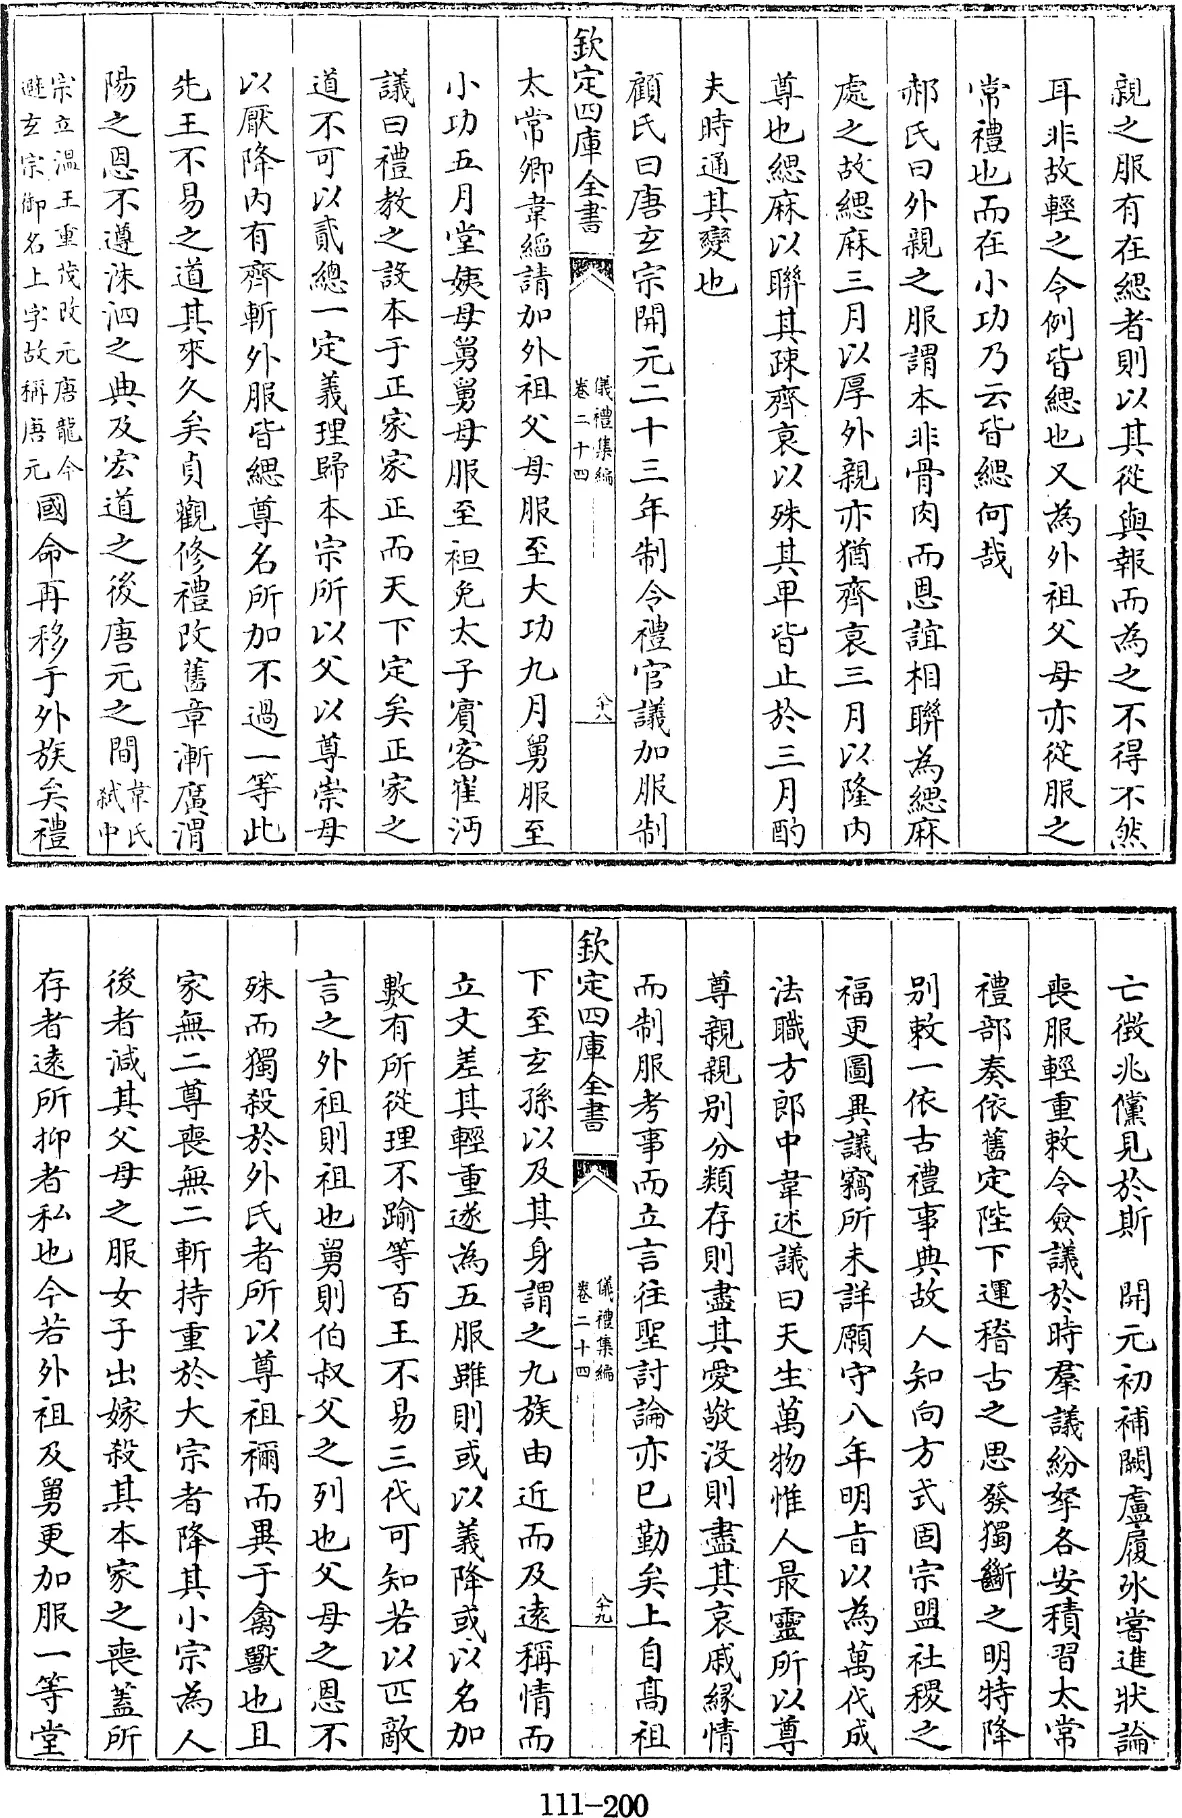 親之服有在緦者則以其從與報而為之不得不然
耳非故輕之令例皆緦也又為外祖父母亦從服之
常禮也而在小功乃云皆緦何哉
郝氏曰外親之服謂本非骨肉而恩誼相聯為緦麻
處之故緦麻三月以厚外親亦猶齊衰三月以隆内
尊也緦麻以聯其疎齊衰以殊其卑皆止於三月酌
夫時通其變也
顧氏曰唐玄宗開元二十三年制令禮官議加服制
欽定四庫全書
儀禮集編
卷二十四
六十八
太常卿韋縚請加外祖父母服至大功九月舅服至
小功五月堂姨母舅舅母服至袒免太子賓客崔沔
議曰禮教之設本于正家家正而天下定矣正家之
道不可以貳總一定義理歸本宗所以父以尊崇母
以厭降内有齊斬外服皆緦尊名所加不過一等此
先王不易之道其來久矣貞觀修禮改舊章漸廣渭
陽之恩不遵洙泗之典及宏道之後唐元之間韋氏弑中
宗立溫王重茂改元唐龍今避玄宗御名上字故稱唐元國命再移于外族矣禮
亡徵兆儻見於斯 開元初補闕盧履氷嘗進狀論
喪服輕重敕令僉議於時羣議紛拏各安積習太常
禮部奏依舊定陛下運稽古之思發獨斷之明特降
别敕一依古禮事典故人知向方式固宗盟社稷之
福更圖異議竊所未詳願守八年明旨以為萬代成
法職方郎中韋述議曰天生萬物惟人最靈所以尊
尊親親别分類存則盡其愛敬沒則盡其哀戚緣情
而制服考事而立言往聖討論亦已勤矣上自高祖
欽定四庫全書
儀禮集編
卷二十四
六十九
下至玄孫以及其身謂之九族由近而及遠稱情而
立文差其輕重遂為五服雖則或以義降或以名加
數有所從理不踰等百王不易三代可知若以匹敵
言之外祖則祖也舅則伯叔父之列也父母之恩不
殊而獨殺於外氏者所以尊祖禰而異于禽獸也且
家無二尊喪無二斬持重於大宗者降其小宗為人
後者減其父母之服女子出嫁殺其本家之喪蓋所
存者遠所抑者私也今若外祖及舅更加服一等堂
111-200